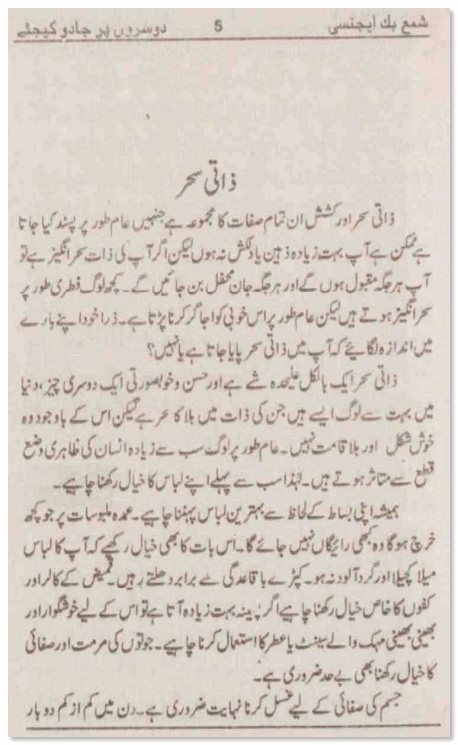 شمع بک ایجنسی 5 دوسروں پر جادو کیجئے
ذاتی سحر
ذاتی سحر اور کشش ان تمام صفات کا مجموعہ ہے جنہیں عام طور پر پسند کیا جاتا
ہے ممکن ہے آپ بہت زیادہ ذہین یا دلکش نہ ہوں لیکن اگر آپ کی ذات سحر انگیز ہے تو
آپ ہر جگہ مقبول ہوں گے اور ہر جگہ جان محفل بن جائیں گے۔ کچھ لوگ فطری طور پر
سحر انگیز ہوتے ہیں لیکن عام طور پر اس خوبی کو اجاگر کرنا پڑتا ہے۔ ذرا خود اپنے بارے
میں اندازہ لگائیے کہ آپ میں ذاتی سحر پایا جاتا ہے یا نہیں؟
ذاتی سحر ایک بالکل علیحدہ شے ہے اور حسن و خوبصورتی ایک دوسری چیز، دنیا
میں بہت سے لوگ ایسے ہیں جن کی ذات میں بلا کا سحر ہے لیکن اس کے باوجود وہ
خوش شکل اور بلا قامت نہیں۔ عام طور پر لوگ سب سے زیادہ انسان کی ظاہری وضع
قطع سے متاثر ہوتے ہیں۔ لہٰذا سب سے پہلے اپنے لباس کا خیال رکھنا چاہیے۔
ہمیشہ اپنی بساط کے لحاظ سے بہترین لباس پہننا چاہیے۔ عمدہ ملبوسات پر جو کچھ
خرچ ہو گا وہ کبھی رائیگاں نہیں جائے گا۔ اس بات کا بھی خیال رکھیے کہ آپ کا لباس
میلا کچیلا اور گرد آلود نہ ہو۔ کپڑے باقاعدگی سے برابر دھلتے رہیں۔ قمیض کے کالر اور
کفوں کا خاص خیال رکھنا چاہیے اگر پسینہ بہت زیادہ آتا ہے تو اس کے لیے خوشگوار اور
بھینی بھینی مہک والے سینٹ یا عطر کا استعمال کرنا چاہیے۔ جوتوں کی مرمت اور صفائی
کا خیال رکھنا بھی بے حد ضروری ہے۔
جسم کی صفائی کے لیے غسل کرنا نہایت ضروری ہے۔ دن میں کم از کم دو بار